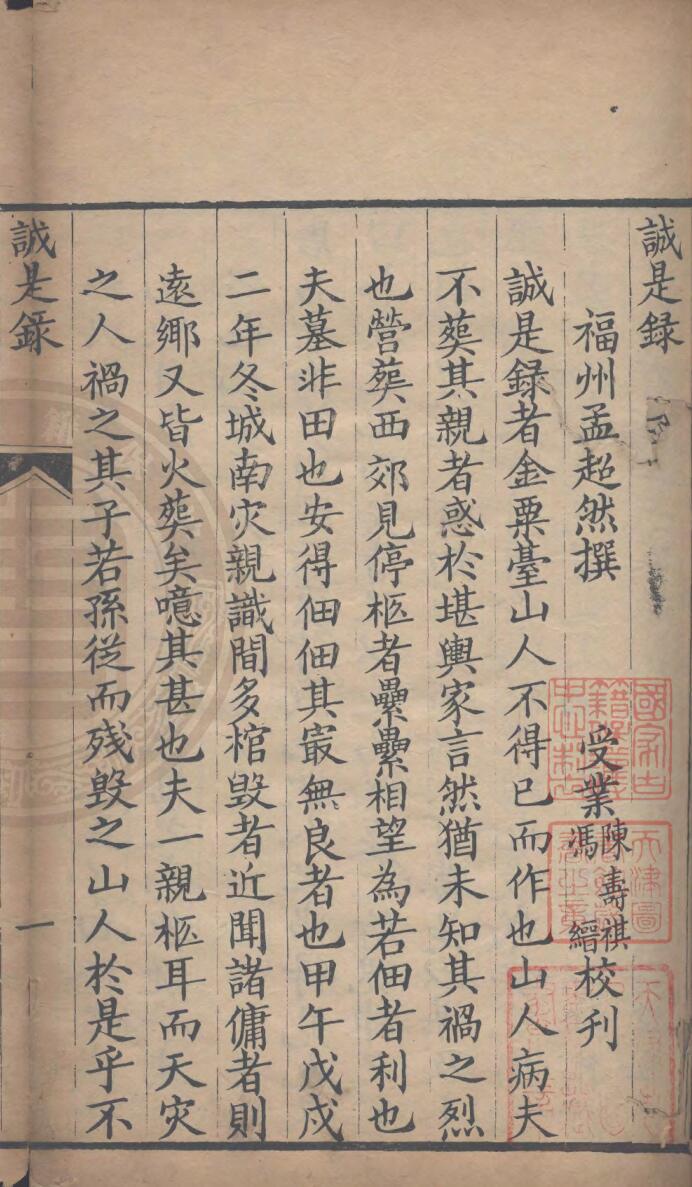 誠是録
福州孟超然撰 受業陳壽祺馮縉校刊
誠是録者金粟臺山人不得已而作也山人病夫
不葬其親者惑於堪輿家言然猶未知其禍之烈
也營葬西郊見停柩者纍纍相望為若佃者利也
夫墓非田也安得佃佃其㝡無良者也甲午戊戌
二年冬城南灾親識間多棺毁者近聞諸傭者則
遠鄉又皆火葬矣噫其甚也夫一親柩耳而天灾
之人禍之其子若孫從而残毁之山人於是乎不
誠是録
一